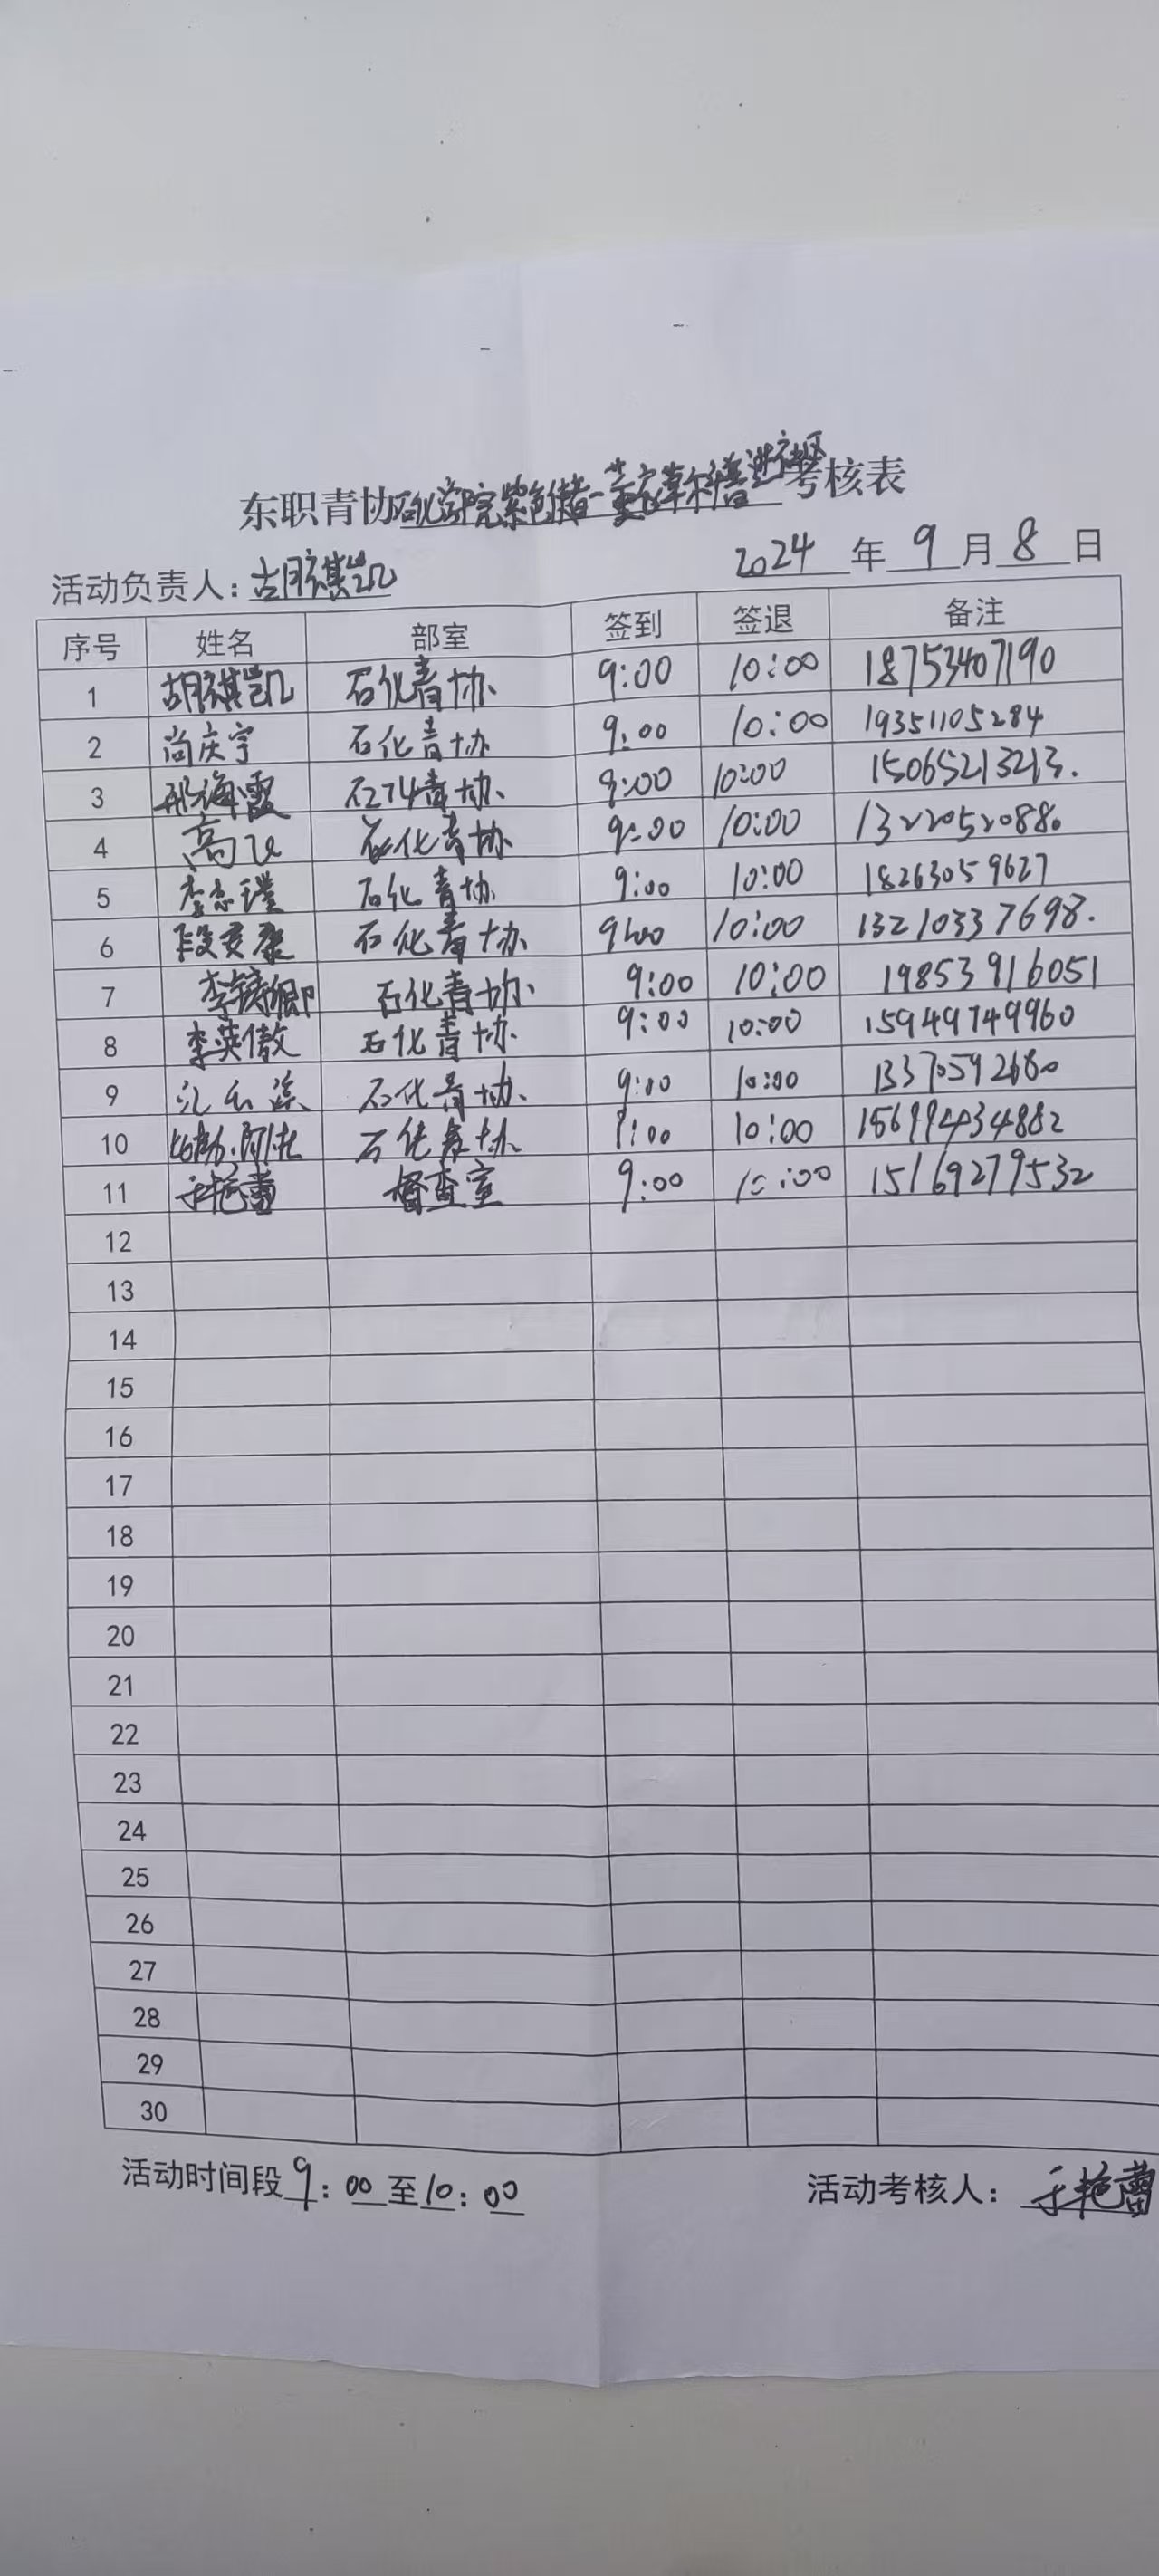 东职青协石化学院紫色使者-薰衣草科普进社区考核表
活动负责人：胡祺凯 2024年9月8日
序号 姓名 部室 签到 签退 备注
1 胡祺凯 石化青协 9:00 10:00 18753407190
2 尚庆宇 石化青协 9:00 10:00 19351105284
3 邢海霞 石化青协 9:00 10:00 15065213213.
4 高飞 石化青协 9:00 10:00 13220520880
5 石化青协 9:00 10:00 18263059627
6 石化青协 9:00 10:00 13210337698.
7 石化青协 9:00 10:00 19853916051
8 李英傲 石化青协 9:00 10:00 15949749960
9 石化青协 9:00 10:00 13370592680
10 石化青协 9:00 10:00 15699434882
11 于艳蕾 督查室 9:00 10:00 15169279532
12
13
14
15
16
17
18
19
20
21
22
23
24
25
26
27
28
29
30
活动时间段9：00至10：00 活动考核人：于艳蕾